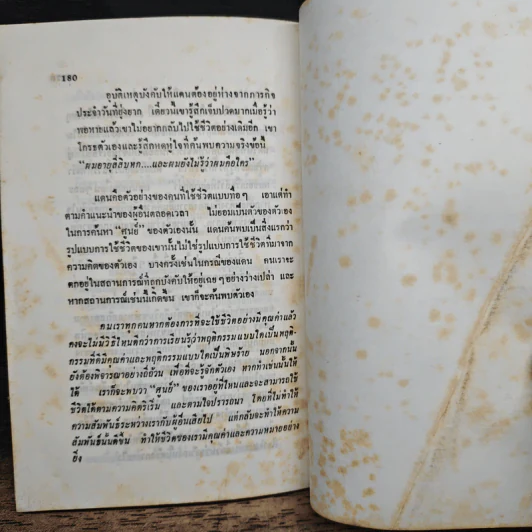 180
อุบัติเหตุบังคับให้แดนต้องอยู่ห่างจากภารกิจ
ประจำวันที่ยุ่งยาก เดี๋ยวนี้เขารู้สึกเจ็บปวดมากเมื่อรู้ว่า
พอหายแล้วเขาไม่อยากกลับไปใช้ชีวิตอย่างเดิมอีก เขา
โกรธตัวเองและรู้สึกหดหู่ใจที่ค้นพบความจริงข้อนี้
"ผมอายุสี่สิบหก....และผมยังไม่รู้ว่าผมคือใคร"
แดนคือตัวอย่างของคนที่ใช้ชีวิตแบบทื่อๆ เอาแต่ทำ
ตามคำแนะนำของผู้อื่นตลอดเวลา ไม่ยอมเป็นตัวของตัวเอง
ในการค้นหา "ศูนย์" ของตัวเองนั้น แดนค้นพบเป็นสิ่งแรกว่า
รูปแบบการใช้ชีวิตของเขานั้นไม่ใช่รูปแบบการใช้ชีวิตที่มาจาก
ความคิดของตัวเอง บางครั้งเช่นในกรณีของแดน คนเราจะ
ตกอยู่ในสถานการณ์ที่ถูกบังคับให้อยู่เฉยๆอย่างว่างเปล่า และ
หากสถานการณ์เช่นนี้เกิดขึ้น เขาก็จะค้นพบตัวเอง
คนเราทุกคนหากต้องการที่จะใช้ชีวิตอย่างมีคุณค่าแล้ว
คงจะไม่มีวิธีไหนดีกว่าการเรียนรู้ว่าพฤติกรรมแบบใดเป็นพฤติ-
กรรมที่มีคุณค่าและพฤติกรรมแบบใดเป็นพิษร้าย นอกจากนั้น
ยังต้องพิจารณาอย่างถี่ถ้วน เพื่อที่จะรู้จักตัวเอง หากทำเช่นนั้นได้
ได้ เราก็จะพบว่า "ศูนย์" ของเราอยู่ที่ไหนและจะสามารถใช้
ชีวิตได้ตามความคิดริเริ่ม และตามใจปรารถนา โดยที่ไม่ทำให้
ความสัมพันธ์ระหว่างเรากับผู้อื่นเสียไป แต่กลับจะทำให้ความ
สัมพันธ์นั้นดีขึ้น ทำให้ชีวิตของเรามีคุณค่าและความหมายอย่าง
ยิ่ง